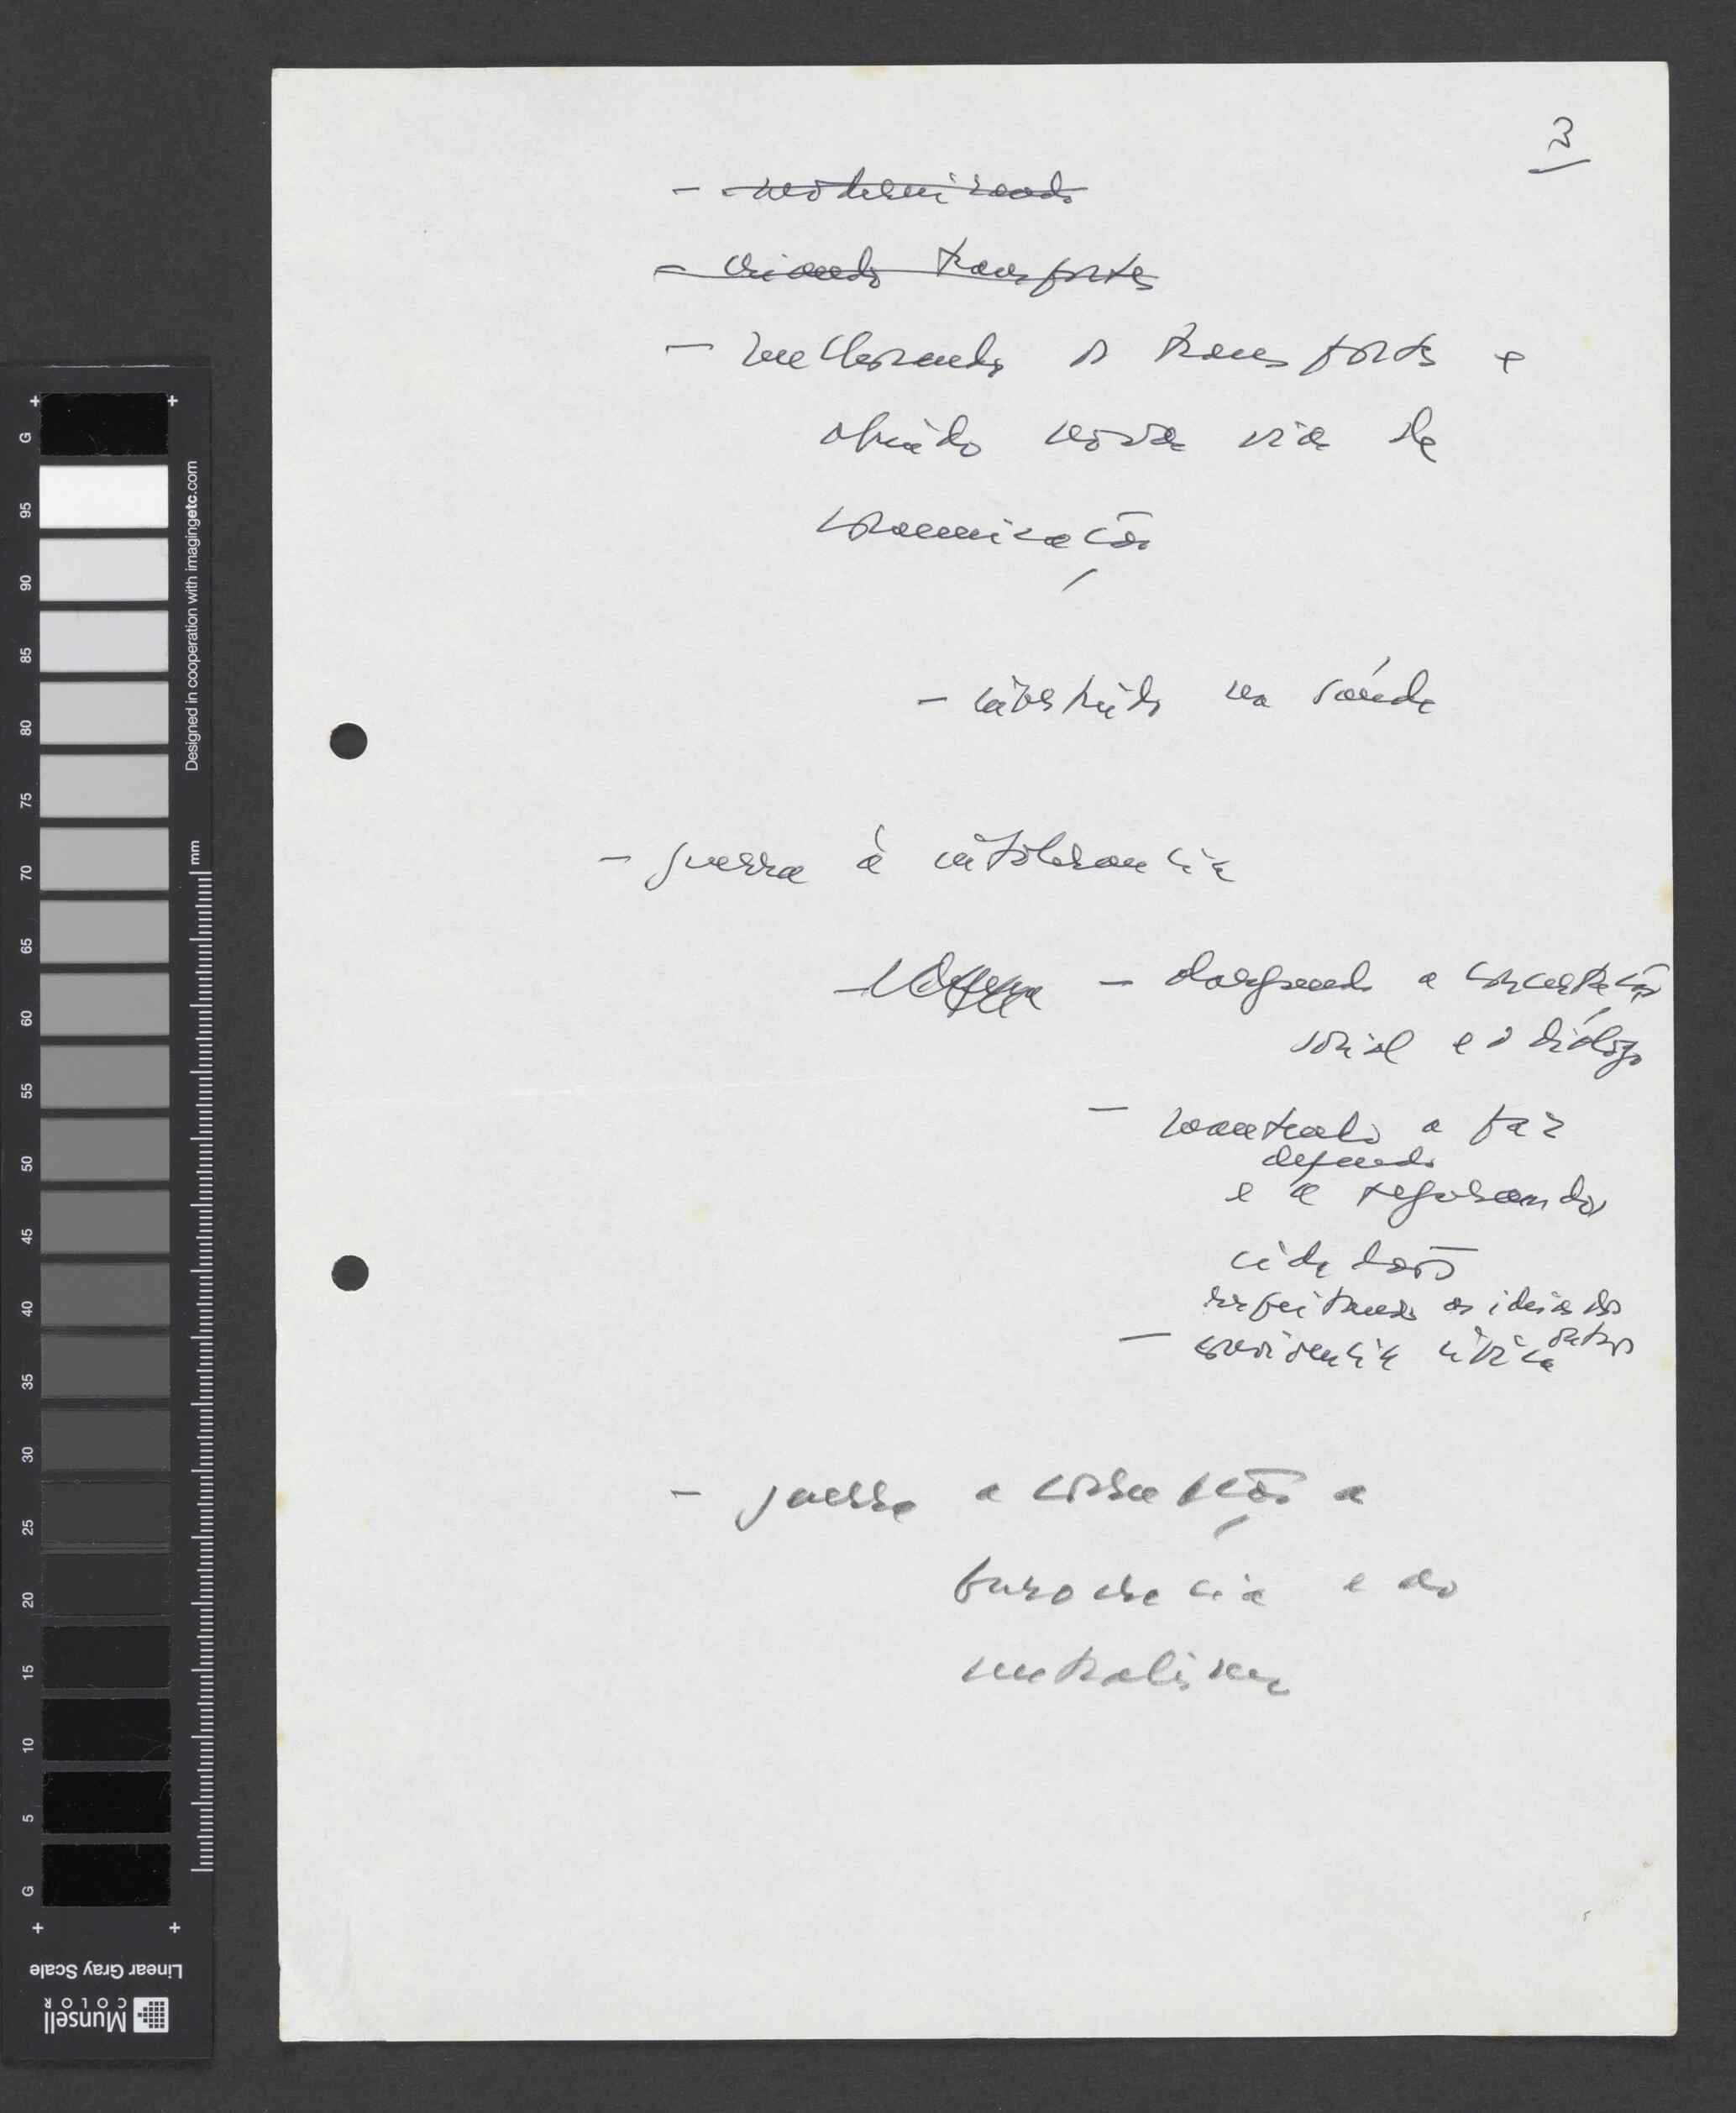 2
- modernizando
- criando transportes
- melhorando os transportes e
abrindo novas vias de
comunicação
- investindo na saúde
- guerra à intolerância
- alargando a concertação
social e o diálogo
- mantendo a paz
defendendo
e a segurança dos
cidadãos
respeitando as ideias dos
outros
- convivência cívica
- guerra à corrupção à
burocracia e ao
centralismo
G
95
90
85
80
75
70
65
60
55
50
45
40
35
30
25
20
15
10
5
G
Designed in cooperation with imagingetc.com
mm
Linear Gray Scale
Munsell
COLOR